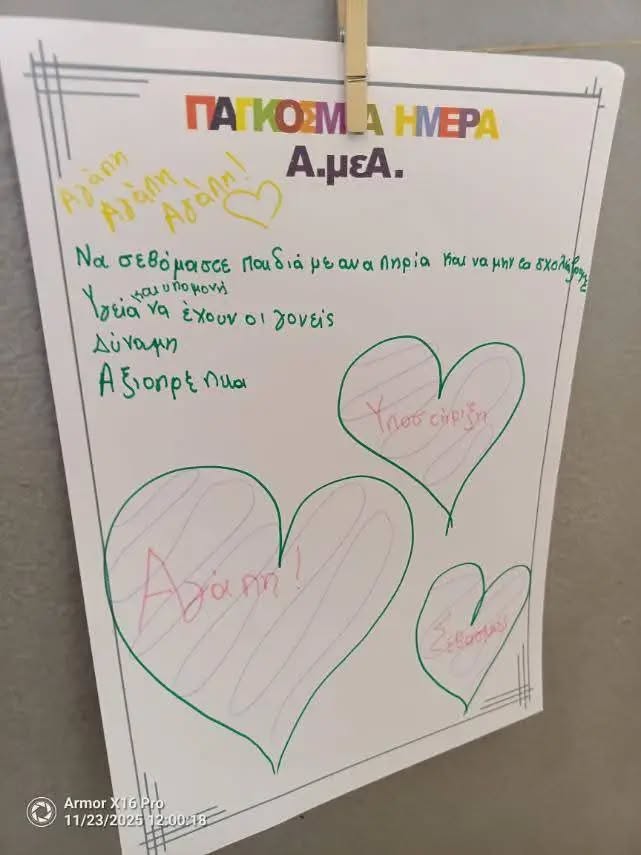 ΠΑΓΚΟΣΜΙΑ ΗΜΕΡΑ
Α.μεΑ.
Αγάπη
Αγάπη
Αγάπη!
Να σεβόμαστε παιδιά με αναπηρία και να μην τα σχολιάζουμε
και υπομονή
Υγεία να έχουν οι γονείς
Δύναμη
Αξιοπρέπεια
Υποστήριξη
Αγάπη!
Σεβασμός
Armor X16 Pro
11/23/2025 12:00:18